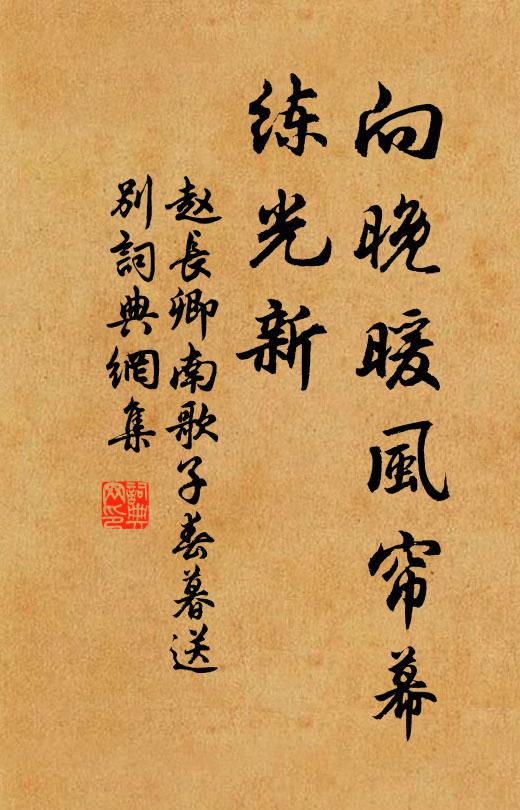 向晚暖風帘幕
练光新
赵長卿南歌子春暮送
別詞典網集
詞典
网印